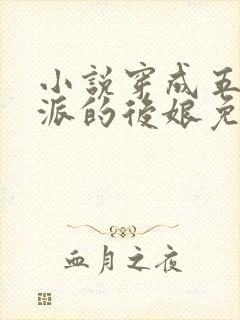 小說穿成五
派的後娘免
血月之夜